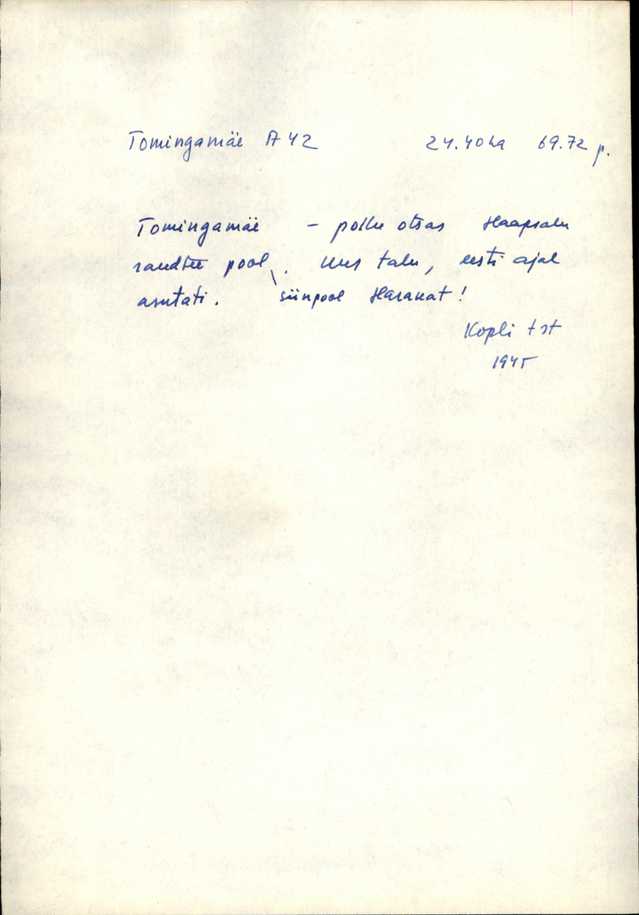 Tomingamäe A 42 24.40ha 69.72 p.
Tomingamäe – põllu otsas Haapsalu
raudtee pool. Uus talu, eesti ajal
asutati. siinpool Harakat!
Kopli tst
1945